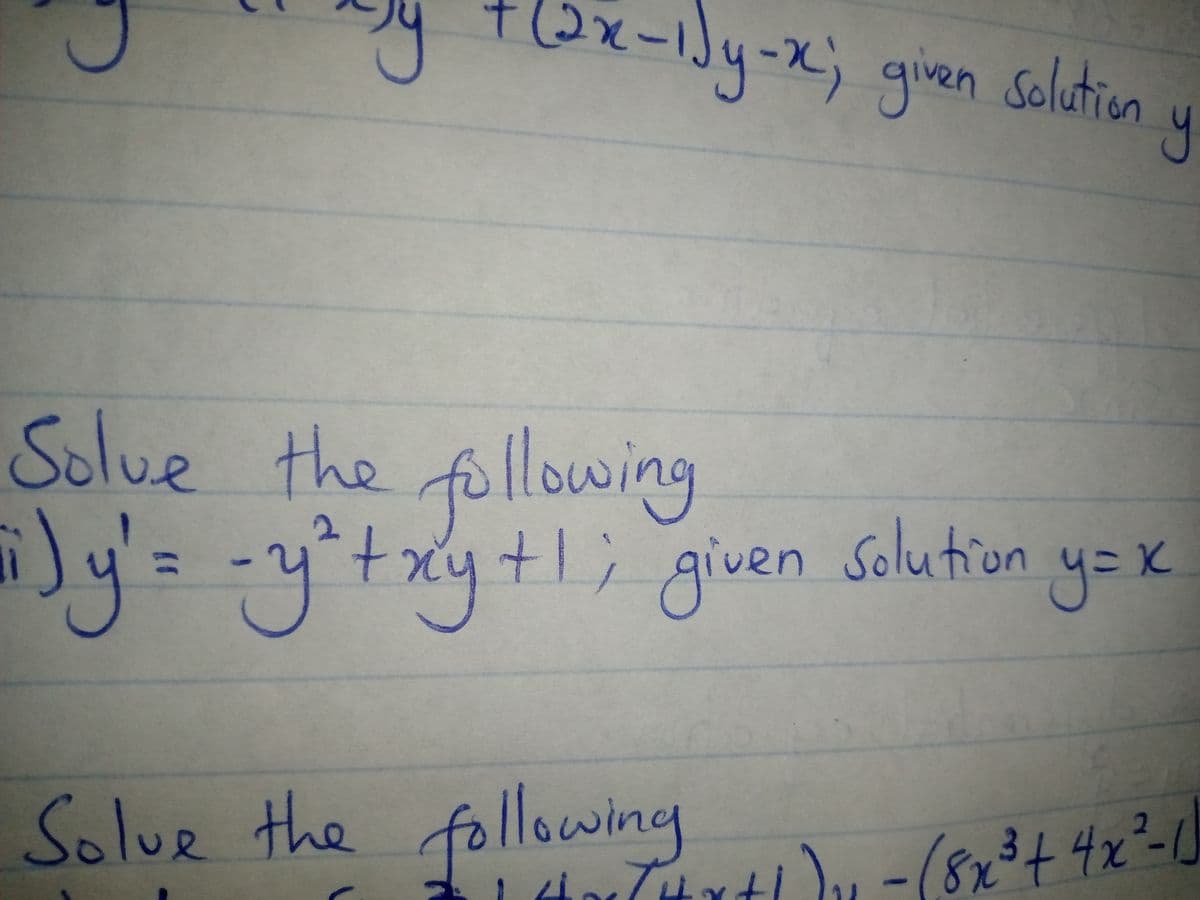 y + (2x-1)y-x; given solution y
Solve the following
ii) y' = -y² + xy + 1; given solution y = x
Solve the following
4x(4x+1)y - (8x³ + 4x² - 1)